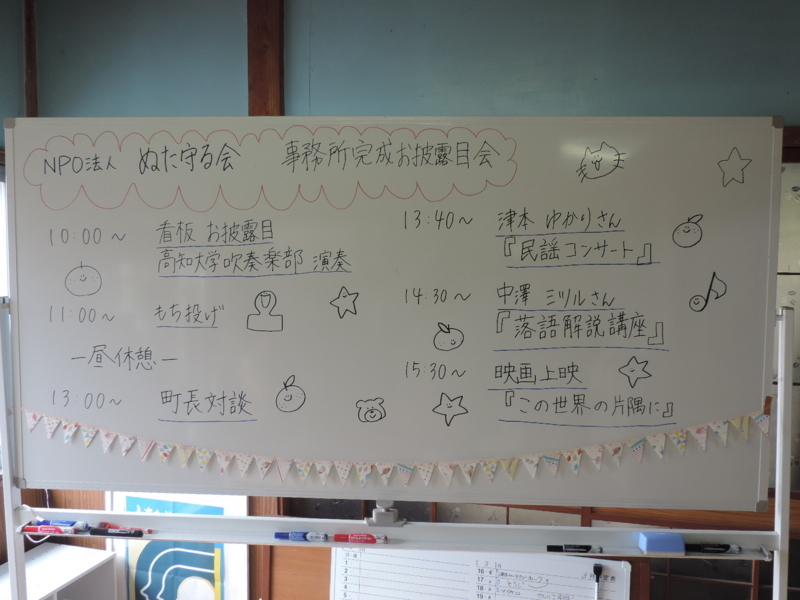 NPO法人 ぬた守る会 事務所完成お披露目会
10:00～ 看板 お披露目
高知大学吹奏楽部 演奏
11:00～ もち投げ
ー昼休憩ー
13:00～ 町長対談
13:40～ 津本 ゆかりさん
『民謡コンサート』
14:30～ 中澤 ミツルさん
『落語解説講座』
15:30～ 映画上映
『この世界の片隅に』